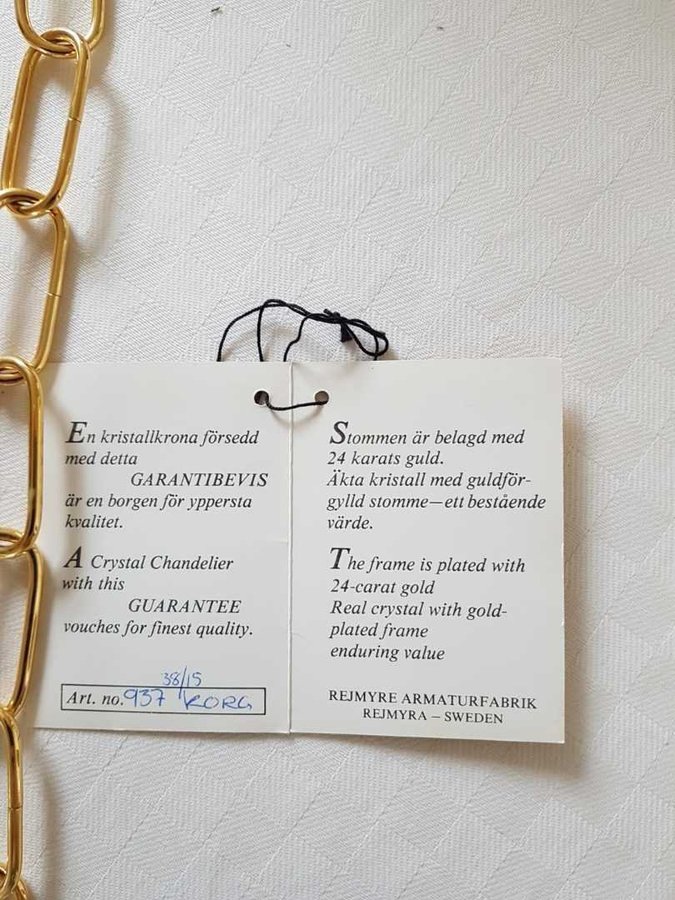 En kristallkrona försedd
med detta
GARANTIBEVIS
är en borgen för yppersta
kvalitet.
A Crystal Chandelier
with this
GUARANTEE
vouches for finest quality.
38/15
Art. no. 937 KORG
Stommen är belagd med
24 karats guld.
Äkta kristall med guldför-
gylld stomme—ett bestående
värde.
The frame is plated with
24-carat gold
Real crystal with gold-
plated frame
enduring value
REJMYRE ARMATURFABRIK
REJMYRA – SWEDEN